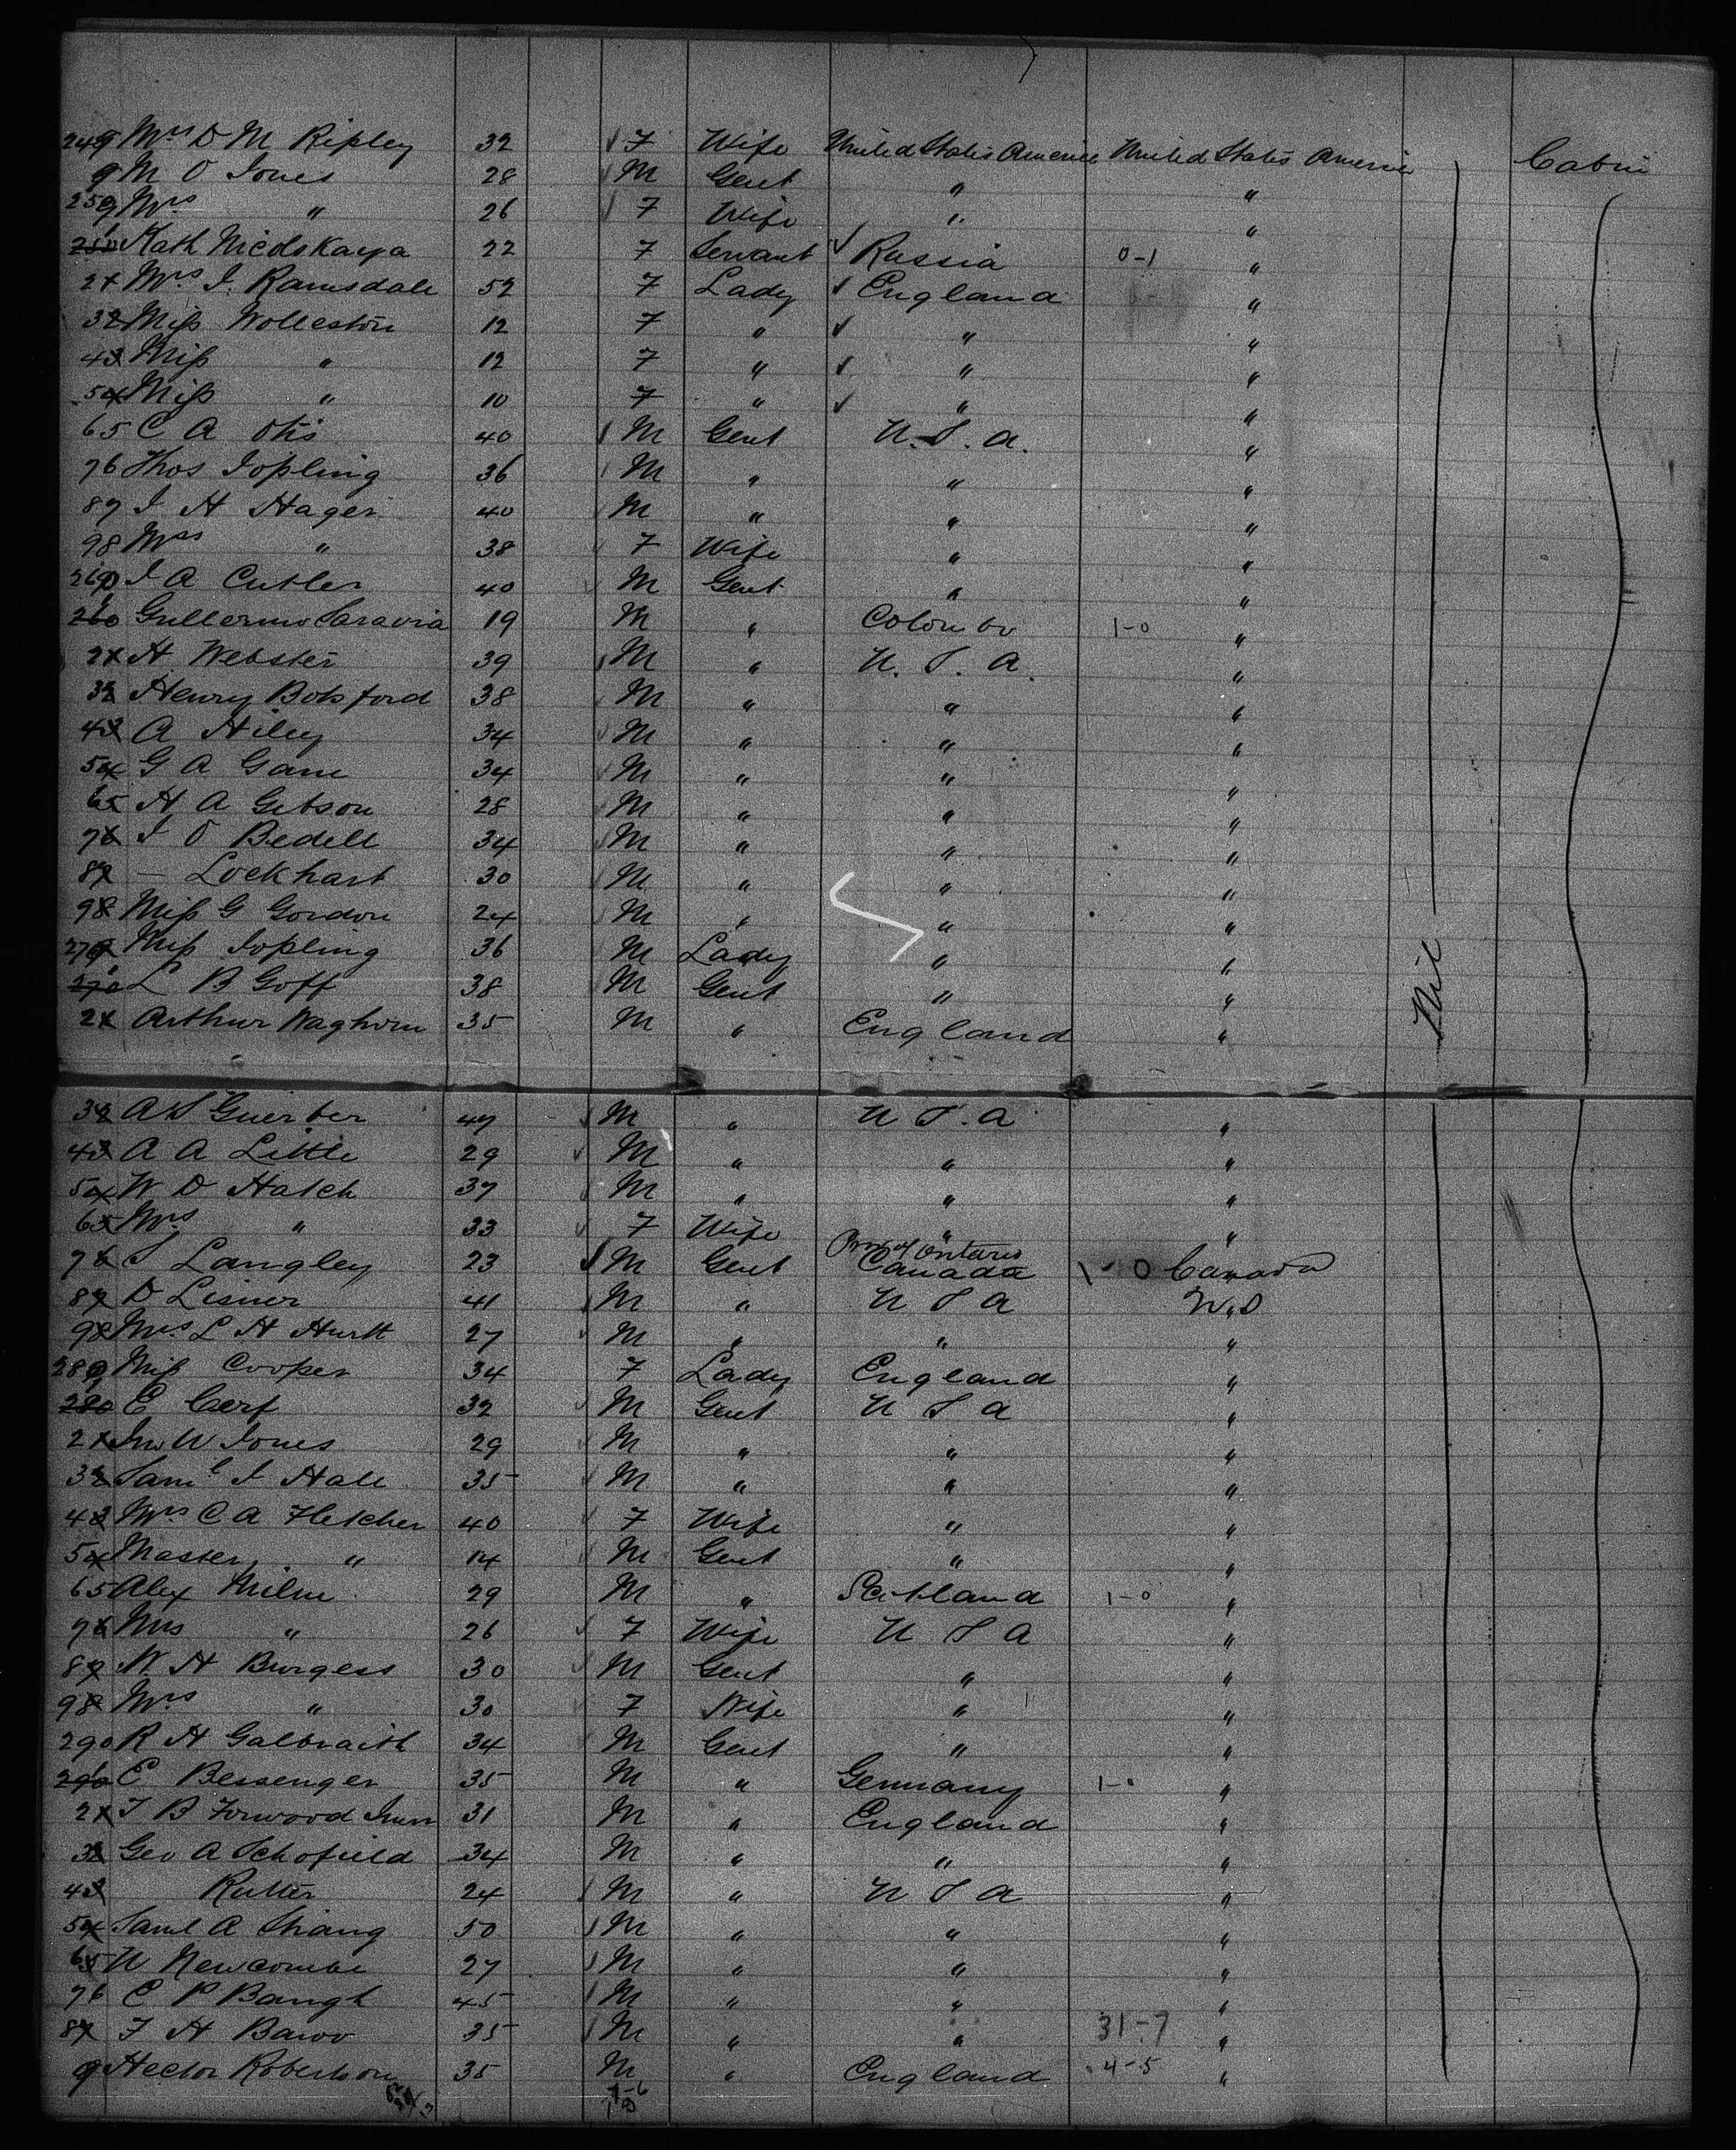 249 Mrs D M Ripley 32 F Wife United States America United States America Cabin
9 M O Jones 28 M Gent " "
250 Mrs " 26 F Wife " "
Kath Nicolskaya 22 F Servant Russia 0-1 "
2 Mrs J. Ramsdale 52 F Lady England "
3 Miss Wolleston 12 F " " "
4 Miss " 12 F " " "
5 Miss " 10 F " " "
6 C A Otis 40 M Gent U.S.A. "
7 Thos Jopling 36 M " " "
8 J H Hager 40 M " " "
9 Mrs " 38 F Wife " "
260 J A Cutler 40 M Gent " "
Gullermo Saravia 19 M " Colombo 1-0 "
2 H Webster 39 M " U.S.A. "
3 Henry Botsford 38 M " " "
4 A Hiley 34 M " " "
5 G A Gane 34 M " " "
6 H A Gibson 28 M " " "
7 J O Bedell 34 M " " "
8 - Lockhart 30 M " " "
9 Miss G Gordon 24 M " " "
270 Miss Jopling 36 M Lady " "
L B Goff 38 M Gent " "
2 Arthur Waghorn 35 M " England "
Nil
3 A S Guerber 47 M " U S. A "
4 A A Little 29 M " " "
5 W D Hatch 37 M " " "
6 Mrs " 33 F Wife " "
7 S Langley 23 M Gent Prov of Ontario Canada 1-0 Canada
8 D Lisner 41 M " U S A U.S
9 Mrs L H Hurtt 27 M " " "
280 Miss Cooper 34 F Lady England "
E Cerf 32 M Gent U S A "
2 Jno W Jones 29 M " " "
3 Saml J Hall 35 M " " "
4 Mrs C A Fletcher 40 F Wife " "
5 Master " 14 M Gent " "
6 Alex Milne 29 M " Scotland 1-0 "
7 Mrs " 26 F Wife U S A "
8 W. H Burgess 30 M Gent " "
9 Mrs " 30 F Wife " "
290 R H Galbraith 34 M Gent " "
E Bessenger 35 M " Germany 1-0 "
2 T B Forwood Junr 31 M " England "
3 Geo A Schofield 34 M " " "
4 Rutter 24 M " U S A "
5 Saml A Strang 50 M " " "
6 W Newcombe 27 M " " "
7 C P Baugh 45 M " " "
8 F H Barro 35 M " " 31-7 "
9 Hector Robertson 35 M " England 4-5 "